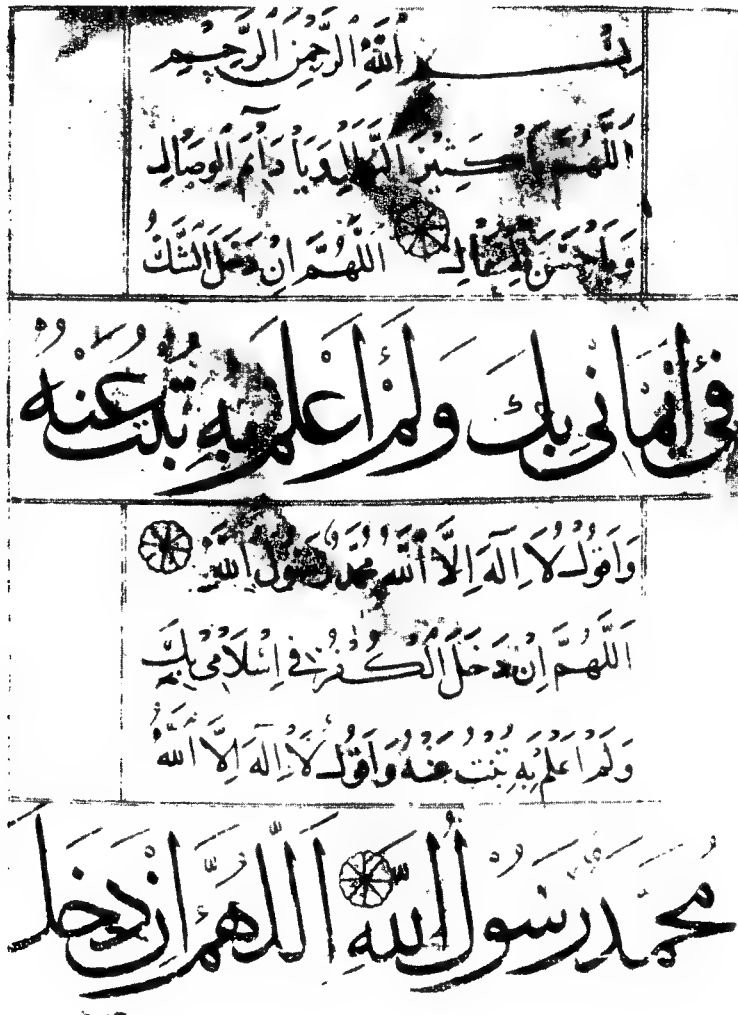 بِسْمِ اللَّهِ الرَّحْمٰنِ الرَّحِيمِ
اَللَّهُمَّ يَا كَثِيرَ وَيَا دَآئِمَ الْوِصَالِ
وَيَا حَسَنَ اَللَّهُمَّ اِنْ دَخَلَ الشَّكُّ
فِي اِيْمَانِي بِكَ وَلَمْ اَعْلَمْ بِهِ تُبْتُ عَنْهُ
وَاَقُولُ لَا اِلٰهَ اِلَّا اللَّهُ مُحَمَّدٌ رَسُولُ اللَّهِ
اَللَّهُمَّ اِنْ دَخَلَ الْكُفْرُ فِي اِسْلَامِي بِكَ
وَلَمْ اَعْلَمْ بِهِ تُبْتُ عَنْهُ وَاَقُولُ لَا اِلٰهَ اِلَّا اللَّهُ
مُحَمَّدٌ رَسُولُ اللَّهِ اَللَّهُمَّ اِنْ دَخَلَ